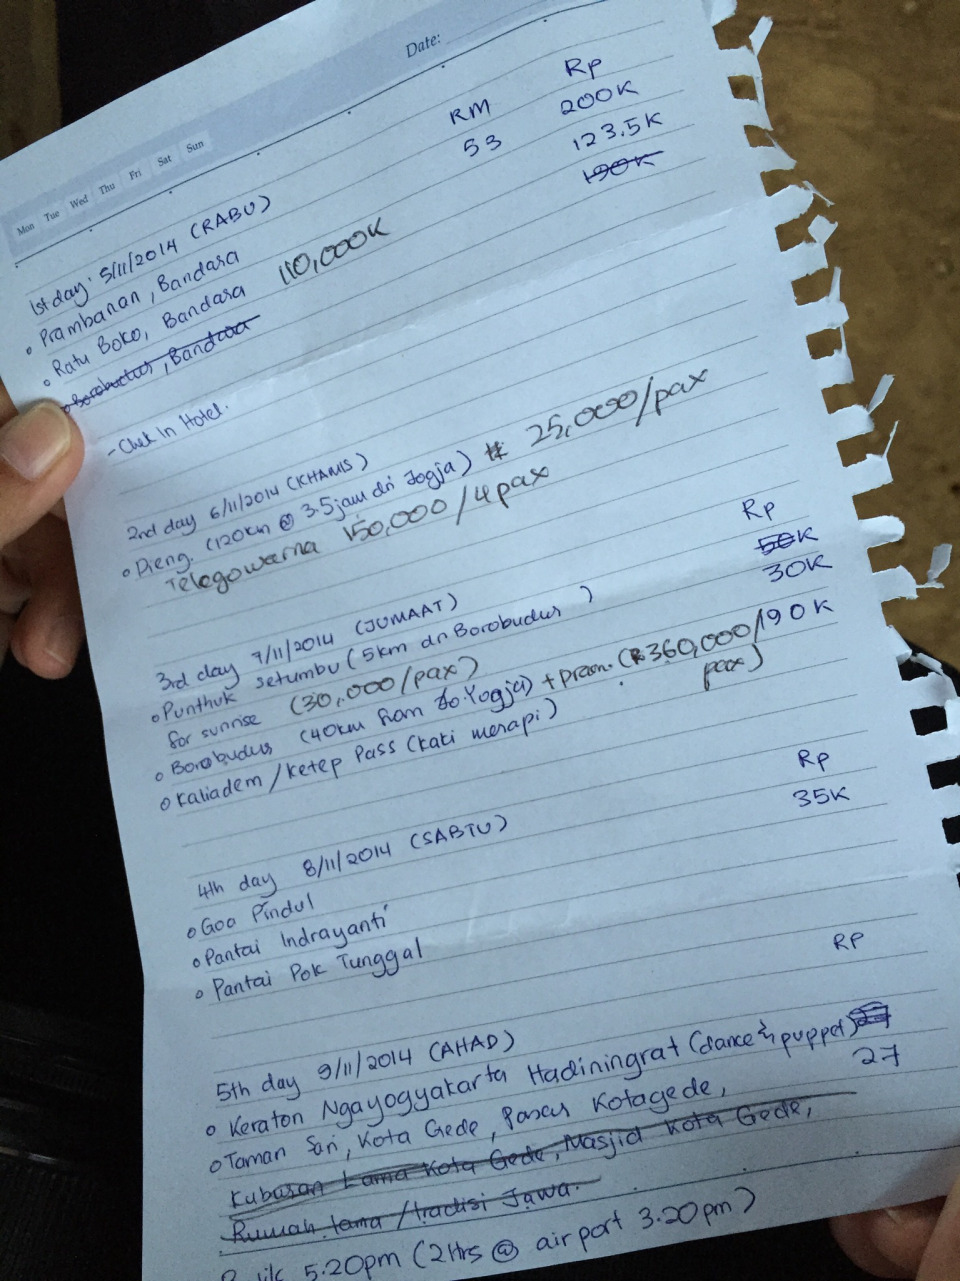 Date:
Mon Tue Wed Thu Fri Sat Sun
RM Rp
1st day: 5/11/2014 (RABU) 53 200K
• Prambanan, Bandara 123.5K
• Ratu Boko, Bandara 110,000K 190K
• Borobudur, Bandara
- Chek In Hotel.
2nd day 6/11/2014 (KHAMIS)
• Dieng. (120km @ 3.5jam dri Jogja) 25,000/pax
Telegowarna 150,000/4pax
Rp
3rd day 7/11/2014 (JUMAAT) 50K
• Punthuk Setumbu (5km dri Borobudur) 30K
for sunrise (30,000/pax)
• Borobudur (40km from Yogja) + pram. (360,000/pax) 190K
• Kaliadem / Ketep Pass (kaki merapi)
Rp
4th day 8/11/2014 (SABTU) 35K
• Goa Pindul
• Pantai Indrayanti
• Pantai Pok Tunggal
RP
5th day 9/11/2014 (AHAD)
• Keraton Ngayogyakarta Hadiningrat (dance & puppet)
• Taman Sari, Kota Gede, Pasar Kotagede, 27
Kuburan Lama Kota Gede, Masjid Kota Gede,
Rumah lama / tradisi Jawa.
5.20pm (2Hrs @ airport 3.20pm)